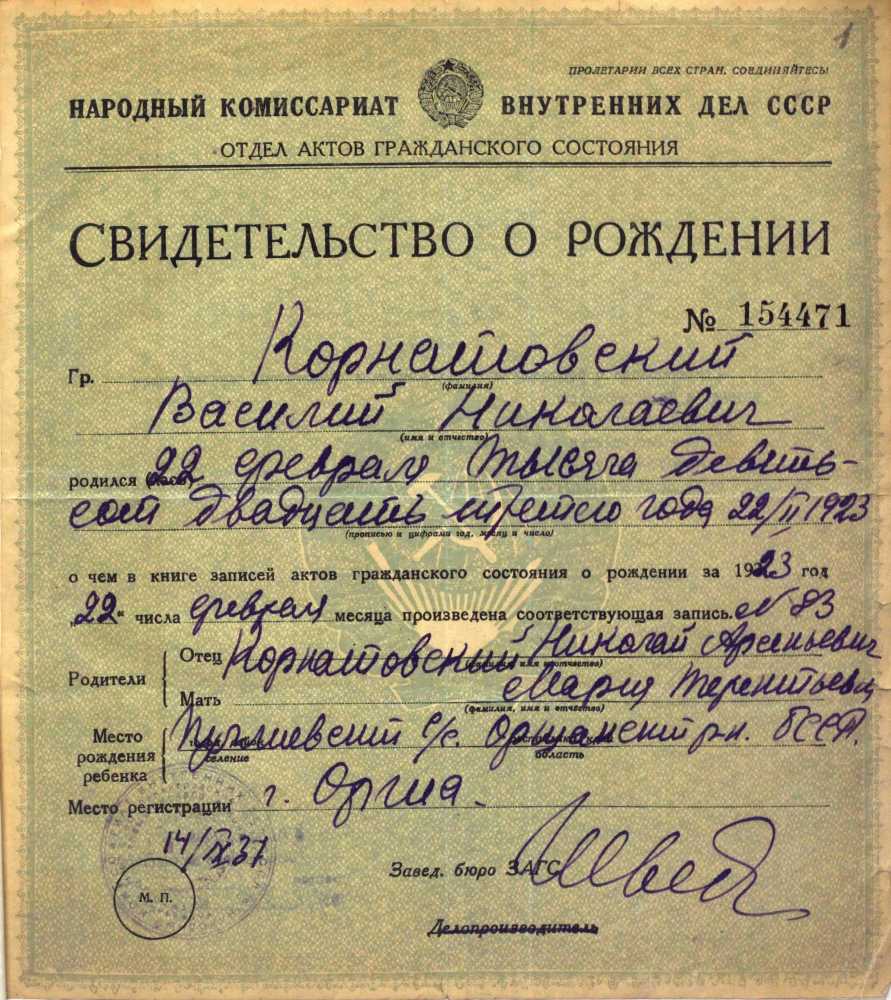 1
ПРОЛЕТАРИИ ВСЕХ СТРАН, СОЕДИНЯЙТЕСЬ!
НАРОДНЫЙ КОМИССАРИАТ ВНУТРЕННИХ ДЕЛ СССР
ОТДЕЛ АКТОВ ГРАЖДАНСКОГО СОСТОЯНИЯ
СВИДЕТЕЛЬСТВО О РОЖДЕНИИ
№ 154471
Гр. Корнатовский
(фамилия)
Василий Николаевич
(имя и отчество)
родился 22 февраля тысяча девять-
сот двадцать третьего года 22/II 1923
(прописью и цифрами год, месяц и число)
о чем в книге записей актов гражданского состояния о рождении за 1923 год
„22“ числа февраля месяца произведена соответствующая запись. № 83
Родители
Отец Корнатовский Николай Арсеньевич
(фамилия, имя и отчество)
Мать Мария Терентьевна
(фамилия, имя и отчество)
Место рождения ребенка с/с. Оршанск р-н. БССР.
селение область
Место регистрации г. Орша.
14/IX 37
М. П.
Завед. бюро ЗАГС
Делопроизводитель